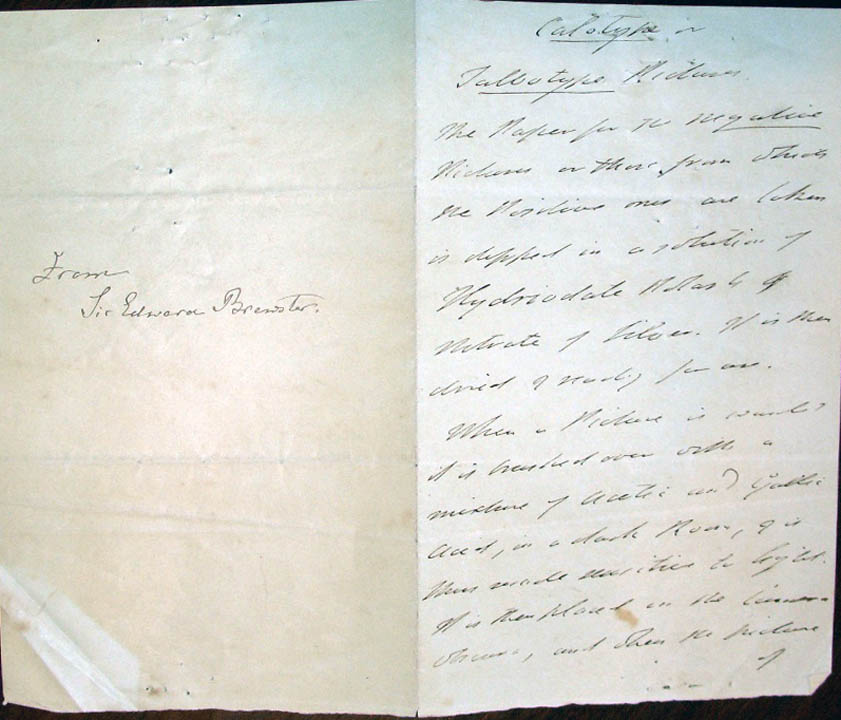 From
Sir Edward Brewster.
Calotype or
Talbotype Pictures.
The Paper for the negative
Pictures or those from which
the Positive ones are taken
is dipped in a solution of
Hydriodate Potash &
Nitrate of Silver. It is then
dried & ready for use.
When a Picture is wanted
it is brushed over with a
mixture of Acetic and Gallic
acid, in a dark Room, & is
thus made sensitive to light.
It is then placed in the Camera
Obscura, and when the Picture
of